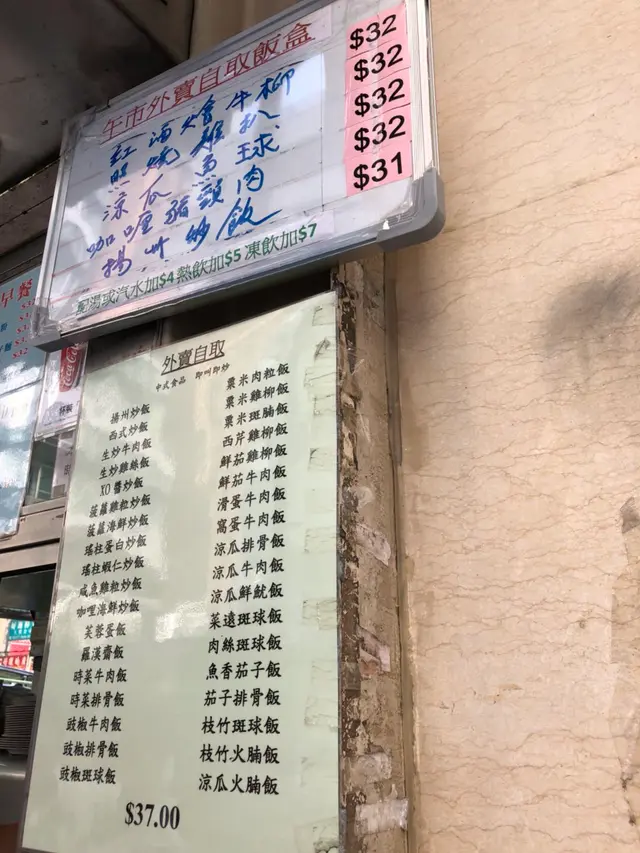 午市外賣自取飯盒
紅酒燴牛柳 $32
照燒雞扒 $32
涼瓜魚球 $32
咖喱豬頸肉 $32
揚州炒飯 $31
配湯或汽水加$4 熱飲加$5 凍飲加$7
早餐
Coca-Cola
外賣自取
中式食品 即叫即炒
揚州炒飯
西式炒飯
生炒牛肉飯
生炒雞絲飯
XO醬炒飯
菠蘿雞粒炒飯
菠蘿海鮮炒飯
瑤柱蛋白炒飯
瑤柱蝦仁炒飯
咸魚雞粒炒飯
咖哩海鮮炒飯
芙蓉蛋飯
羅漢齋飯
時菜牛肉飯
時菜排骨飯
豉椒牛肉飯
豉椒排骨飯
豉椒斑球飯
粟米肉粒飯
粟米雞柳飯
粟米斑腩飯
西芹雞柳飯
鮮茄雞柳飯
鮮茄牛肉飯
滑蛋牛肉飯
窩蛋牛肉飯
涼瓜排骨飯
涼瓜牛肉飯
涼瓜鮮魷飯
菜遠斑球飯
肉絲斑球飯
魚香茄子飯
茄子排骨飯
枝竹斑球飯
枝竹火腩飯
涼瓜火腩飯
$37.00